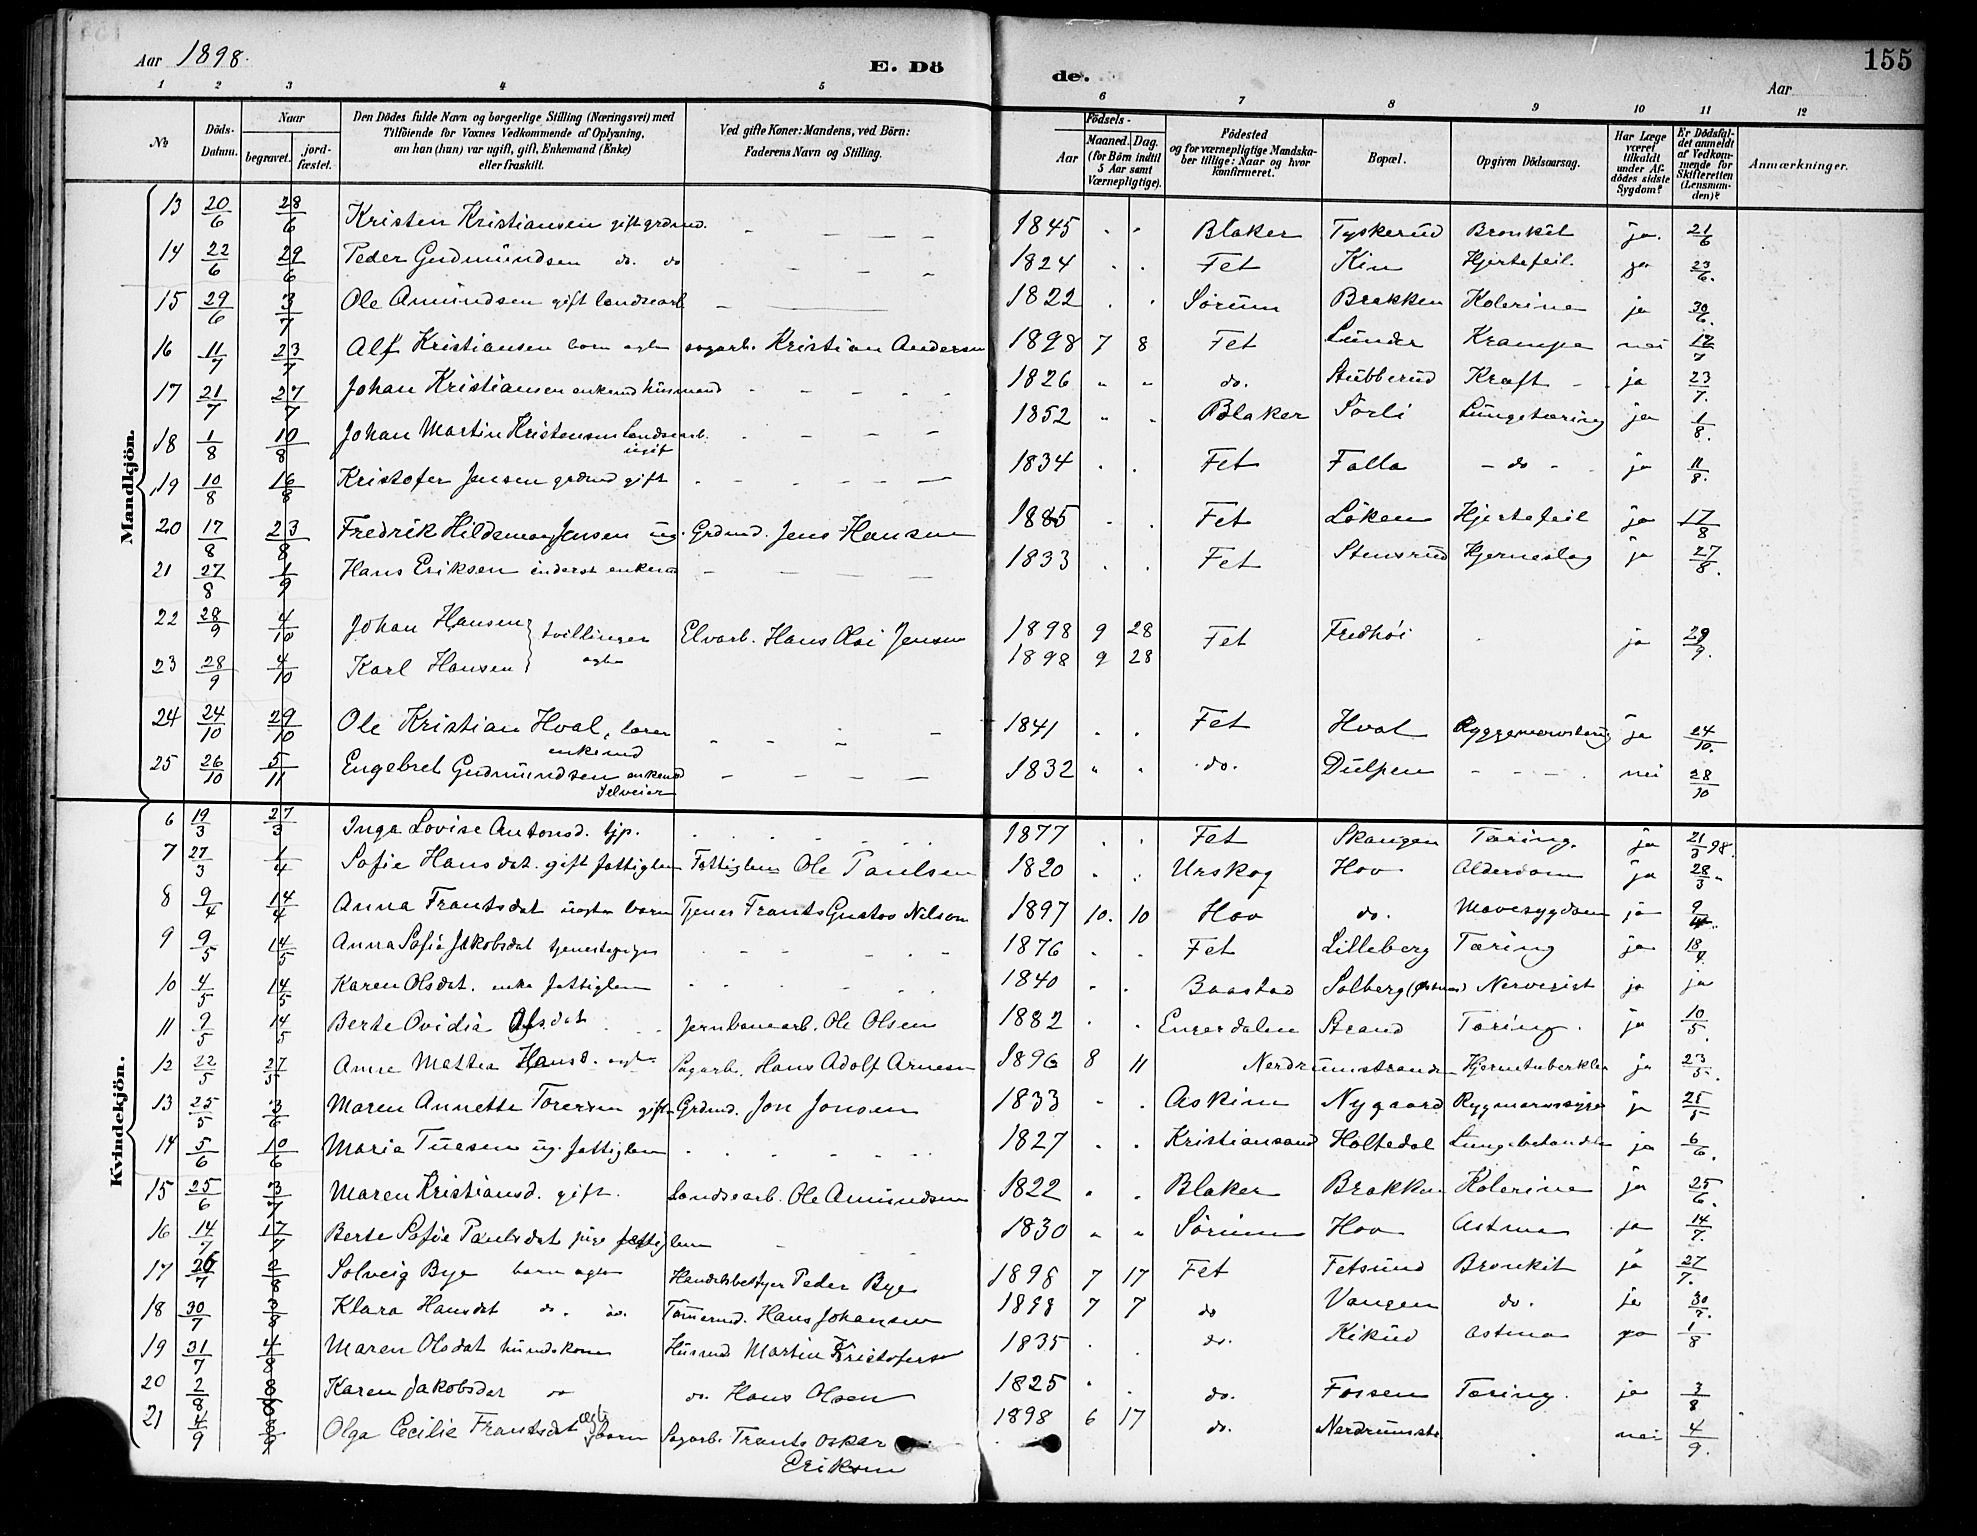 Aar 1898. E. Dö de. Aar 155
1 2 3 4 5 6 7 8 9 10 11 12
№ Döds-Datum. Naar begravet. jord-fæstet. Den Dödes fulde Navn og borgerlige Stilling (Næringsvei) med Tilföiende for Voxnes Vedkommende af Oplysning, om han (hun) var ugift, gift, Enkemand (Enke) eller fraskilt. Ved gifte Koner: Mandens, ved Börn: Faderens Navn og Stilling. Födsels- Aar Maaned. Dag. (for Börn indtil 5 Aar samt Værnepligtige). Födested og for værnepligtige Mandskaber tillige: Naar og hvor konfirmeret. Bopæl. Opgiven Dödsaarsag. Har Læge været tilkaldt under Afdödes sidste Sygdom? Er Dödsfaldet anmeldt af Vedkommende for Skifteretten (Lensmanden)? Anmærkninger.
Mandkjön.
13 20/6 28/6 Kristen Kristiansen gift grdmd. 1845 Blaker Tyskerud Bronkit ja. 21/6
14 22/6 29/6 Peder Gudmundsen do. do 1824 Fet Kin Hjertefeil. ja 23/6.
15 29/6 3/7 Ole Amundsen gift landsearb 1822 Sørum Brakken Kolerine ja 30/6.
16 11/7 23/7 Alf Kristiansen barn ægte sagarb. Kristian Andersen 1898 7 8 Fet Lunder Krampe nei 12/7
17 21/7 27/7 Johan Kristiansen enkemd husmand 1826 do. Stubberud Kræft ja 23/7.
18 1/8 10/8 Johan Martin Kristensen landsearb. ugift 1852 Blaker Sørli Lungetæring ja 1/8.
19 10/8 16/8 Kristofer Jensen grdmd gift 1834 Fet Falla do ja 11/8.
20 17/8 23/8 Fredrik Hildemar Jensen ug. Grdmd. Jens Hansen 1885 Fet Løken Hjertefeil ja 17/8
21 27/8 1/9 Hans Eriksen inderst enkemd 1833 Fet Stensrud Hjerneslag ja 27/8.
22 28/9 4/10 Johan Hansen } tvillinger Elvarb. Hans Olai Jensen 1898 9 28 Fet Fredhøi ja 29/9.
23 28/9 4/10 Karl Hansen } ægte 1898 9 28
24 24/10 29/10 Ole Kristian Hval, lærer enkemd 1841 Fet Hval Ryggemarvstæring ja 24/10.
25 26/10 5/11 Engebret Gudmundsen enkemd Selveier 1832 do. Dulpen nei 28/10
Kvindekjön.
6 19/3 27/3 Inga Lovise Antonsd. tjp. 1877 Fet Skaugen Tæring. ja 21/3 98.
7 27/3 1/4 Sofie Hansdat. gift fattiglem Fattiglem Ole Paulsen 1820 Urskog Hov Alderdom ja 28/3 "
8 9/4 14/4 Anna Frantsdat uægte barn Tjener Frants Gustav Nilson 1897 10. 10 Hov do. Mavesygdom ja 9/4.
9 9/5 14/5 Anna Sofie Jakobsdat tjenestepige 1876 Fet Lilleberg Tæring ja 18/
10 4/5 14/5 Karen Olsdat. enke fattiglem 1840 Baastad Solberg Nervegigt ja ja
11 9/5 14/5 Berte Ovidia Olsdat Jernbanearb. Ole Olsen 1882 Engerdalen Strand Tæring. ja 10/5.
12 22/5 27/5 Anne Mathea Hansd. ægte Sagarb. Hans Adolf Arnesen 1896 8 11 Nerdrumstranden Hjernetuberkler ja 23/5.
13 25/5 3/6 Maren Annette Toresen gift Grdmd. Jon Jonsen 1833 Askim Nygaard ja 25/5
14 5/6 10/6 Maria Tuesen ug. fattiglem 1827 Kristiansand Holtedal ja 6/6.
15 25/6 3/7 Maren Kristiansd. gift. Landsearb. Ole Amundsen 1822 Blaker Brakken Kolerine ja 25/6.
16 14/7 17/7 Berte Sofie Paulsdat pige fattiglem 1830 Sørum Hov Astma ja 14/7.
17 26/7 2/8 Solveig Bye barn ægte Handelsbestyer Peder Bye 1898 7 17 Fet Fetsund Bronkit ja 27/7.
18 30/7 3/8 Klara Hansdat do. do. Tømermd. Hans Johansen 1898 7 7 do Vangen do. ja 30/7.
19 31/7 4/8 Maren Olsdat husmdskone Husmd Martin Kristofersen 1835 do. Kikud Astma ja 1/8
20 2/8 8/8 Karen Jakobsdat do do. Hans Olsen 1825 do. Fossen Tæring. ja 3/8
21 4/9 8/9 Olga Cecilie Frantsdat ægte barn Sagarb. Frants Oskar Eriksen 1898 6 17 do. Nerdrumstr nei 4/9.